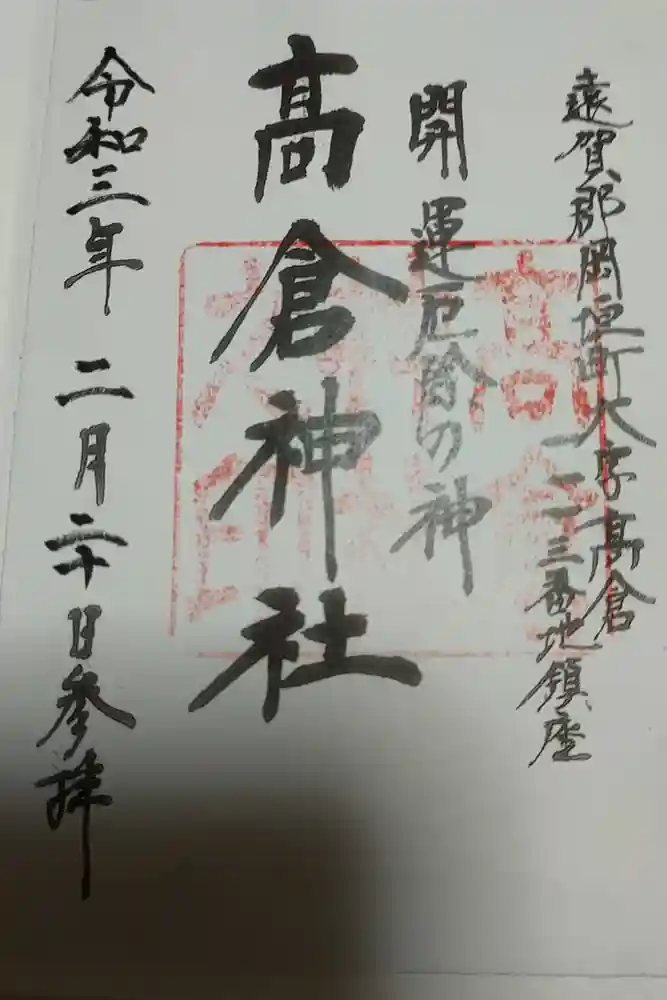 遠賀郡岡垣町大字高倉
一一二三番地鎮座
開運厄除の神
髙倉神社
令和三年 二月二十日参拝